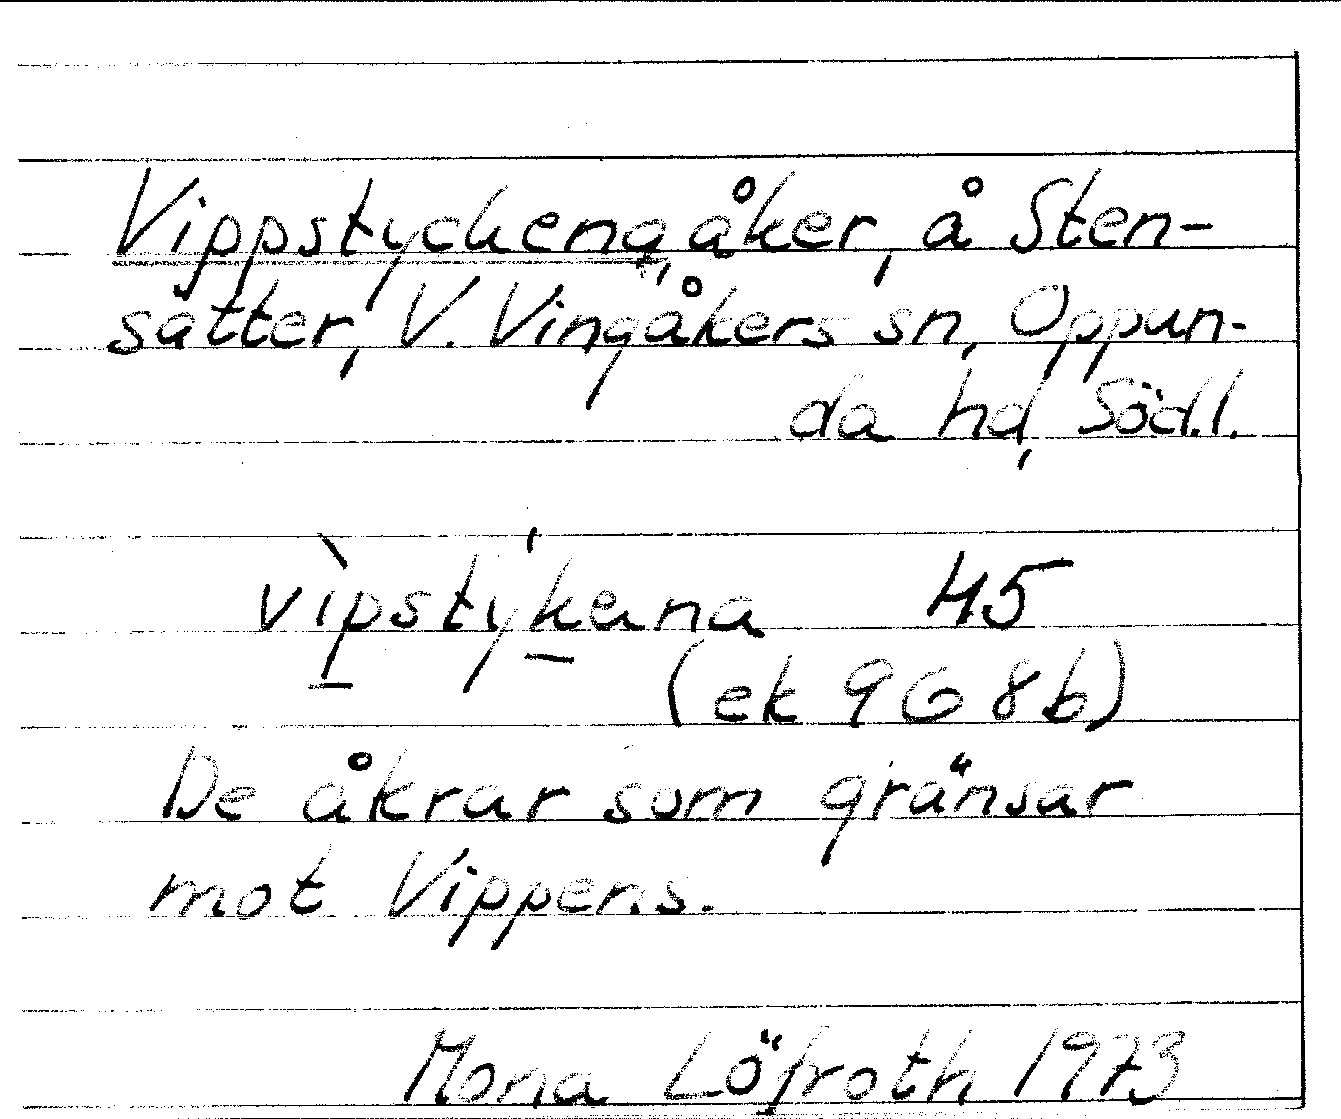 Vippstyckena, åker, å Sten-
sätter, V. Vingåkers sn, Oppun-
da hd, Södl.
vìpstýkana 45
(ek 9G 8b)
De åkrar som gränsar
mot Vippens.
Mona Löfroth 1973